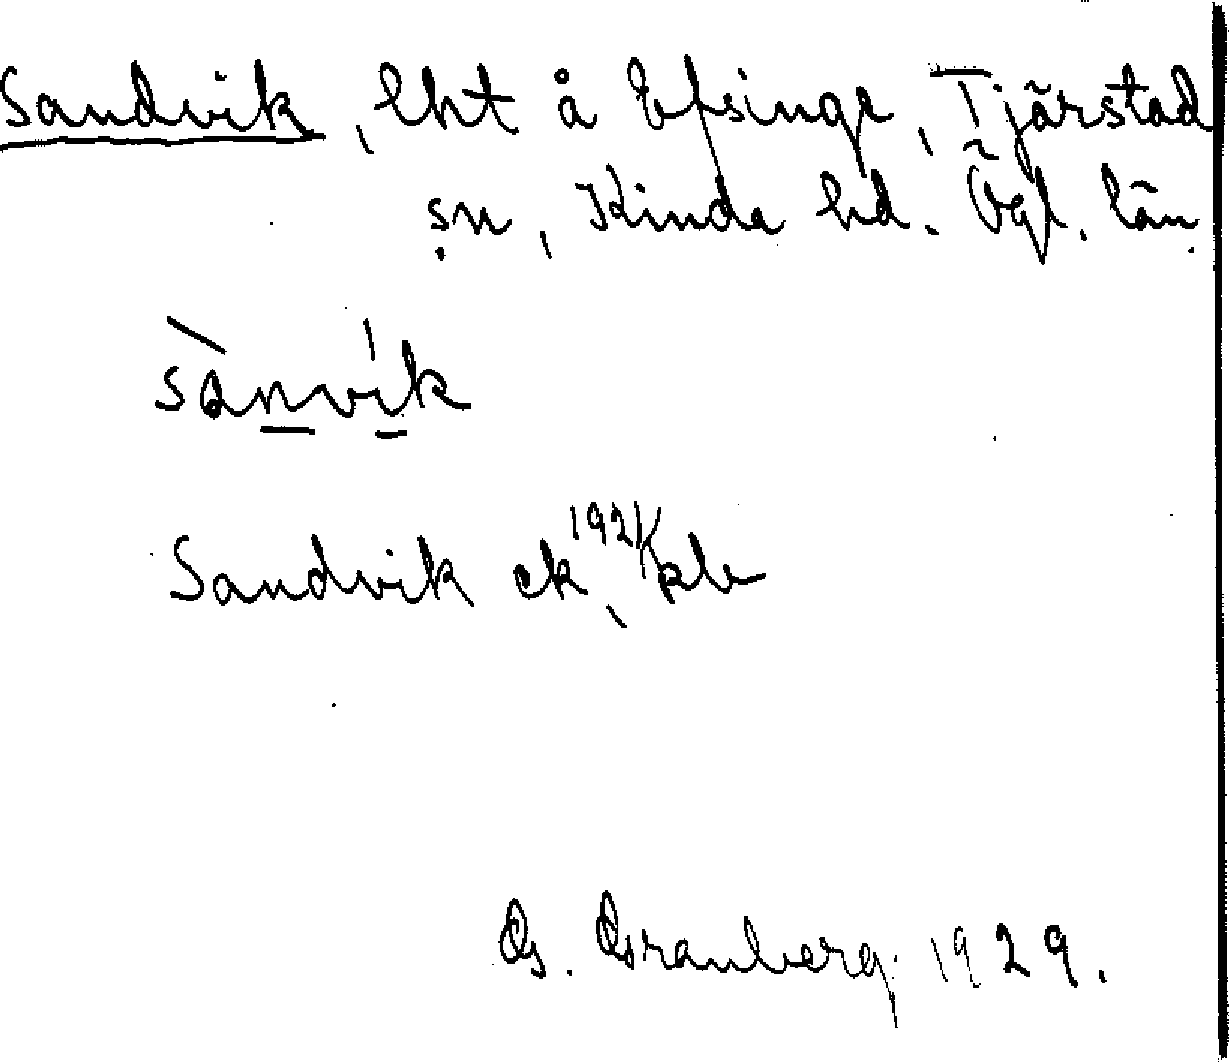 Sandvik, lht å Efsinge, Tjärstad
sn, Kinda hd. Ögl. län.
sànvík
Sandvik ek, 1921 kb
G. Granberg 1929.